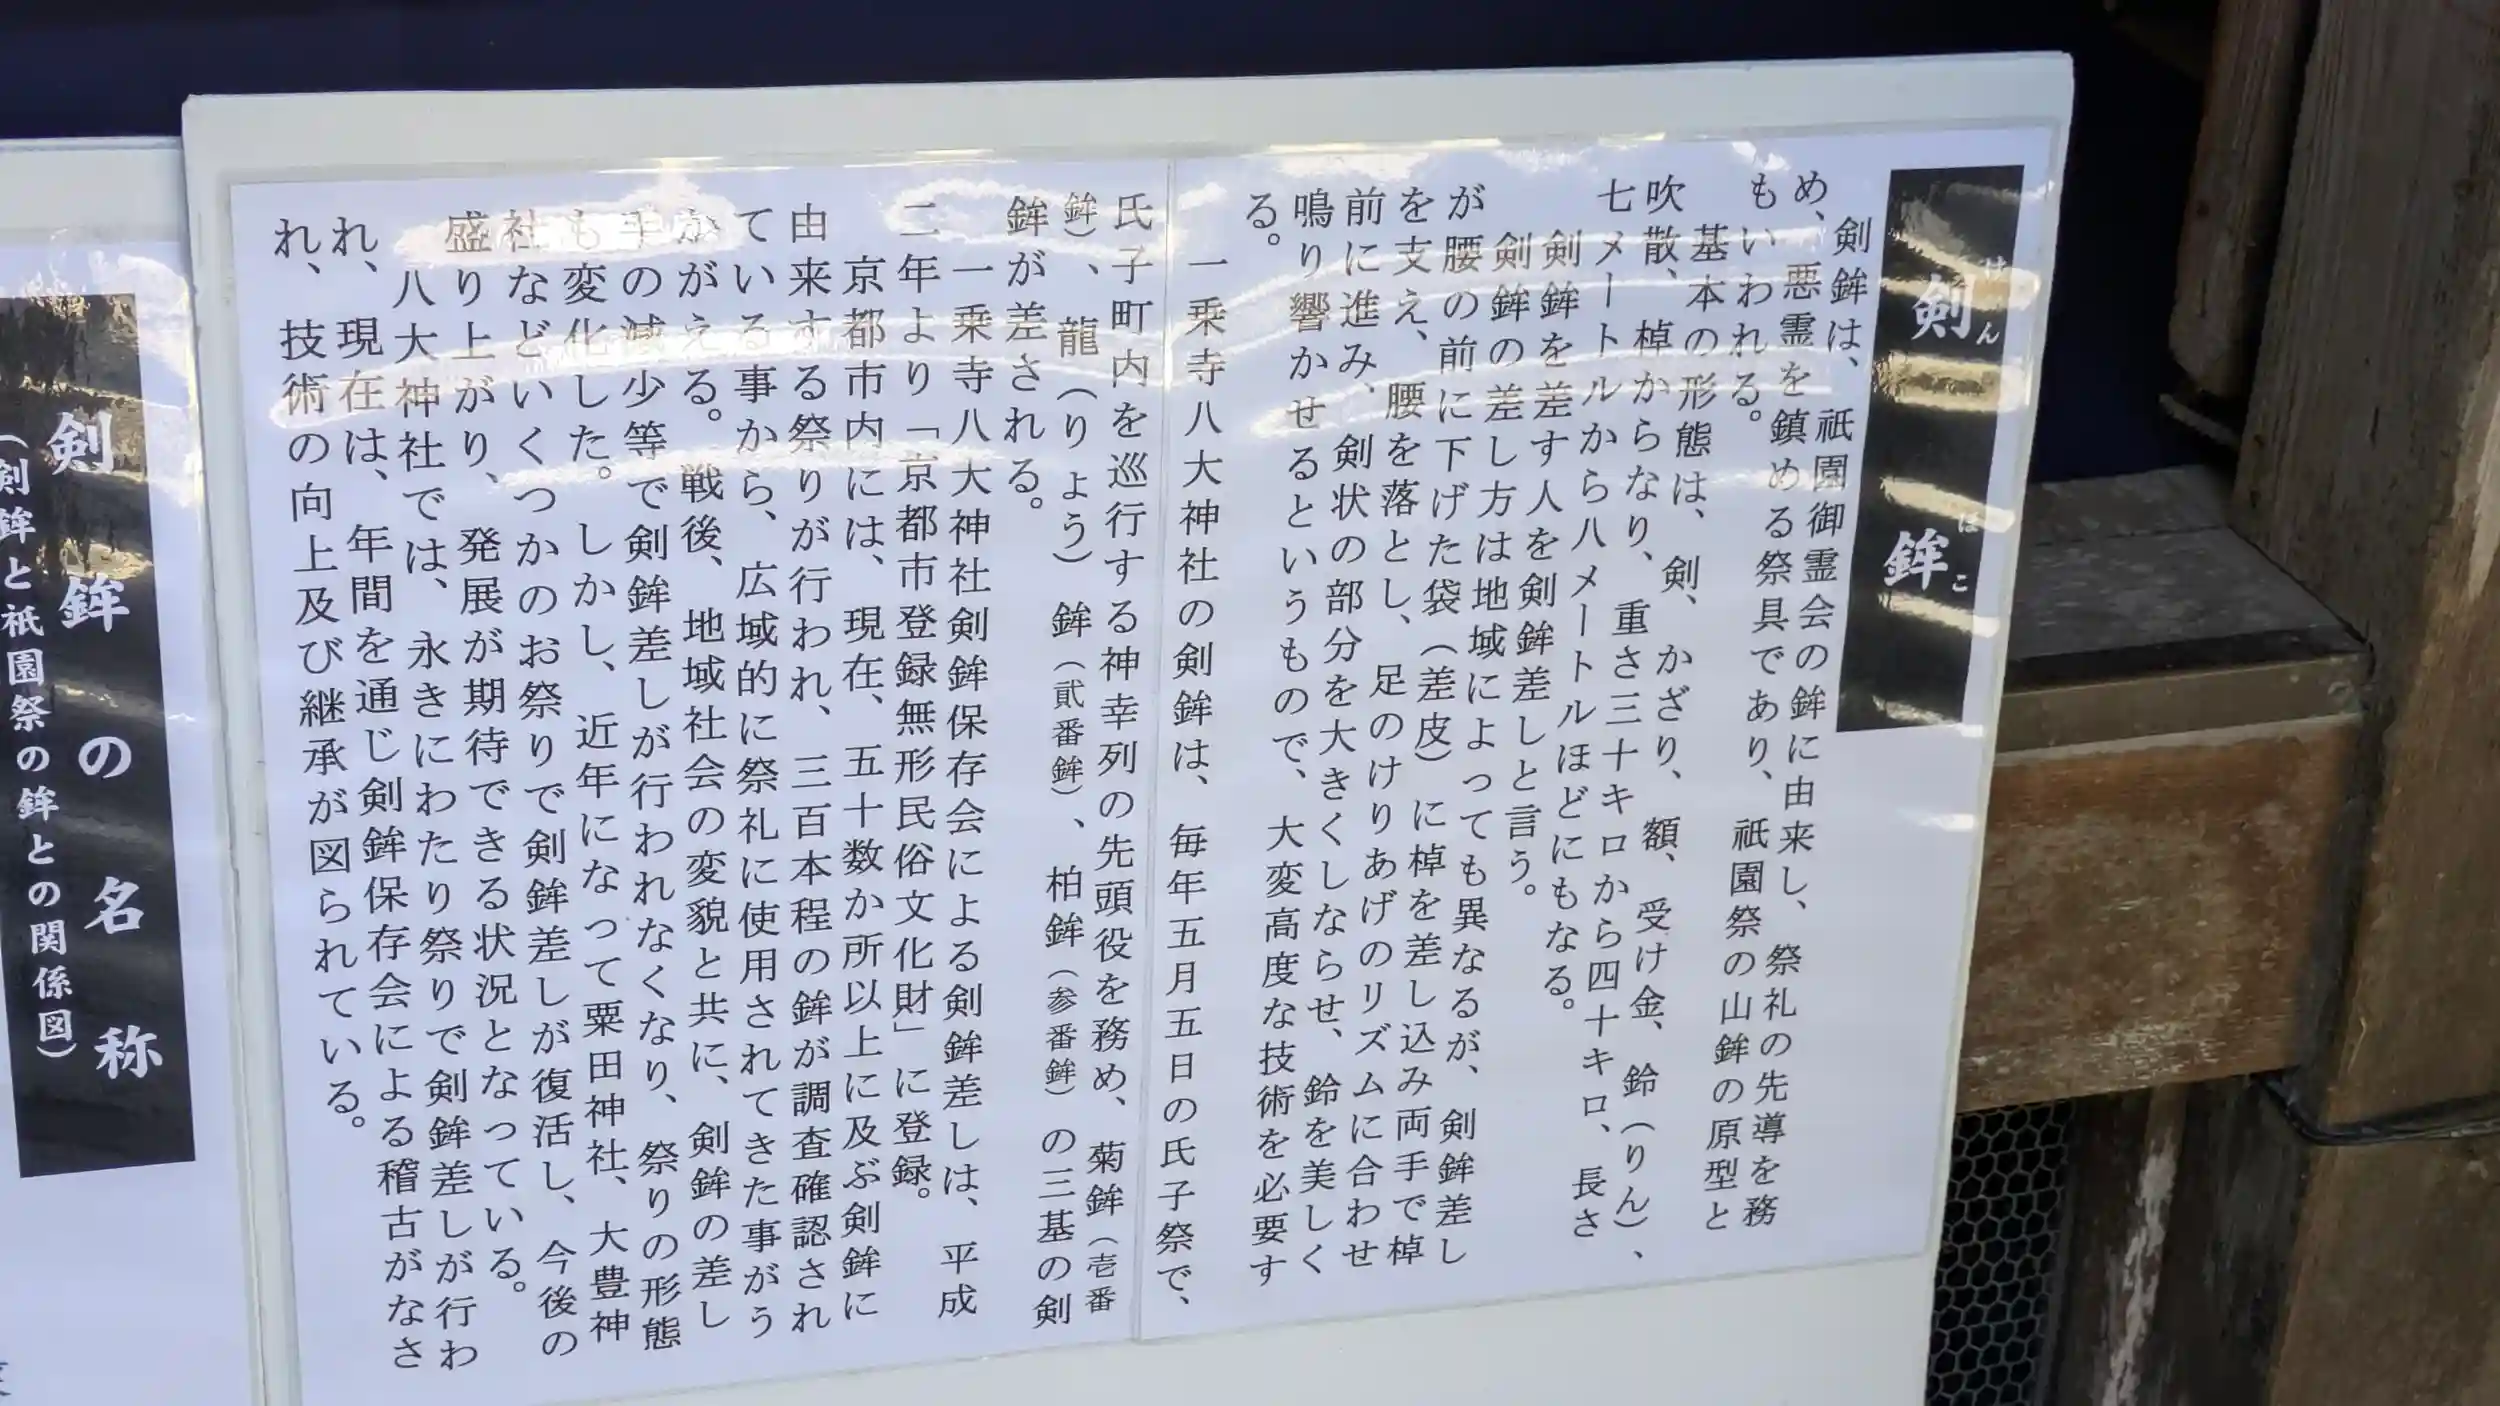 剣鉾
けんほこ
剣鉾は、祇園御霊会の鉾に由来し、祭礼の先導を務
め、悪霊を鎮める祭具であり、祇園祭の山鉾の原型と
もいわれる。
基本の形態は、剣、かざり、額、受け金、鈴（りん）、
吹散、棹からなり、重さ三十キロから四十キロ、長さ
七メートルから八メートルほどにもなる。
剣鉾を差す人を剣鉾差しと言う。
剣鉾の差し方は地域によっても異なるが、剣鉾差し
が腰の前に下げた袋（差皮）に棹を差し込み両手で棹
を支え、腰を落とし、足のけりあげのリズムに合わせ
前に進み、剣状の部分を大きくしならせ、鈴を美しく
鳴り響かせるというもので、大変高度な技術を必要す
る。
一乗寺八大神社の剣鉾は、毎年五月五日の氏子祭で、
氏子町内を巡行する神幸列の先頭役を務め、菊鉾（壱番
鉾）、龍（りょう）鉾（貳番鉾）、柏鉾（参番鉾）の三基の剣
鉾が差される。
一乗寺八大神社剣鉾保存会による剣鉾差しは、平成
二年より「京都市登録無形民俗文化財」に登録。
京都市内には、現在、五十数か所以上に及ぶ剣鉾に
由来する祭りが行われ、三百本程の鉾が調査確認され
ている事から、広域的に祭礼に使用されてきた事がう
かがえる。戦後、地域社会の変貌と共に、剣鉾の差し
手の減少等で剣鉾差しが行われなくなり、祭りの形態
も変化した。しかし、近年になって粟田神社、大豊神
社などいくつかのお祭りで剣鉾差しが復活し、今後の
盛り上がり、発展が期待できる状況となっている。
八大神社では、永きにわたり祭りで剣鉾差しが行わ
れ、現在は、年間を通じ剣鉾保存会による稽古がなさ
れ、技術の向上及び継承が図られている。
剣鉾の名称
（剣鉾と祇園祭の鉾との関係図）